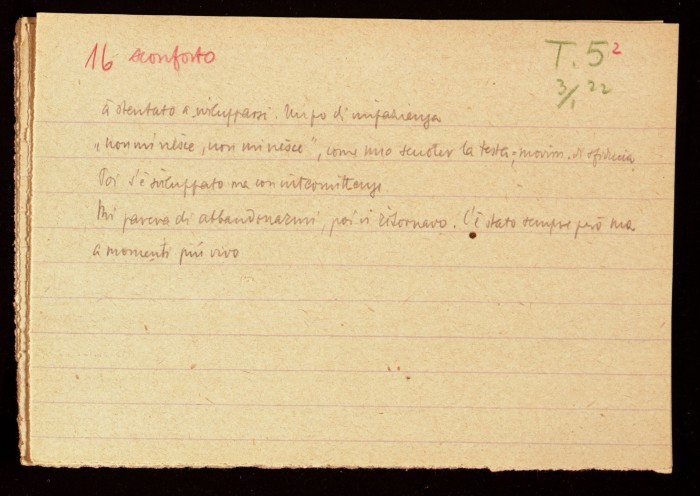 16 sconforto
T. 5 2
3/1 22
à stentato a svilupparsi. Un po di impazienza
„non mi riesce, non mi riesce”, come uno scuoter la testa = movim. di sfiducia
Poi s'è sviluppato ma con intermittenze
Mi pareva di abbandonarmi, poi vi ritornavo. C'è stato sempre però ma
a momenti più vivo